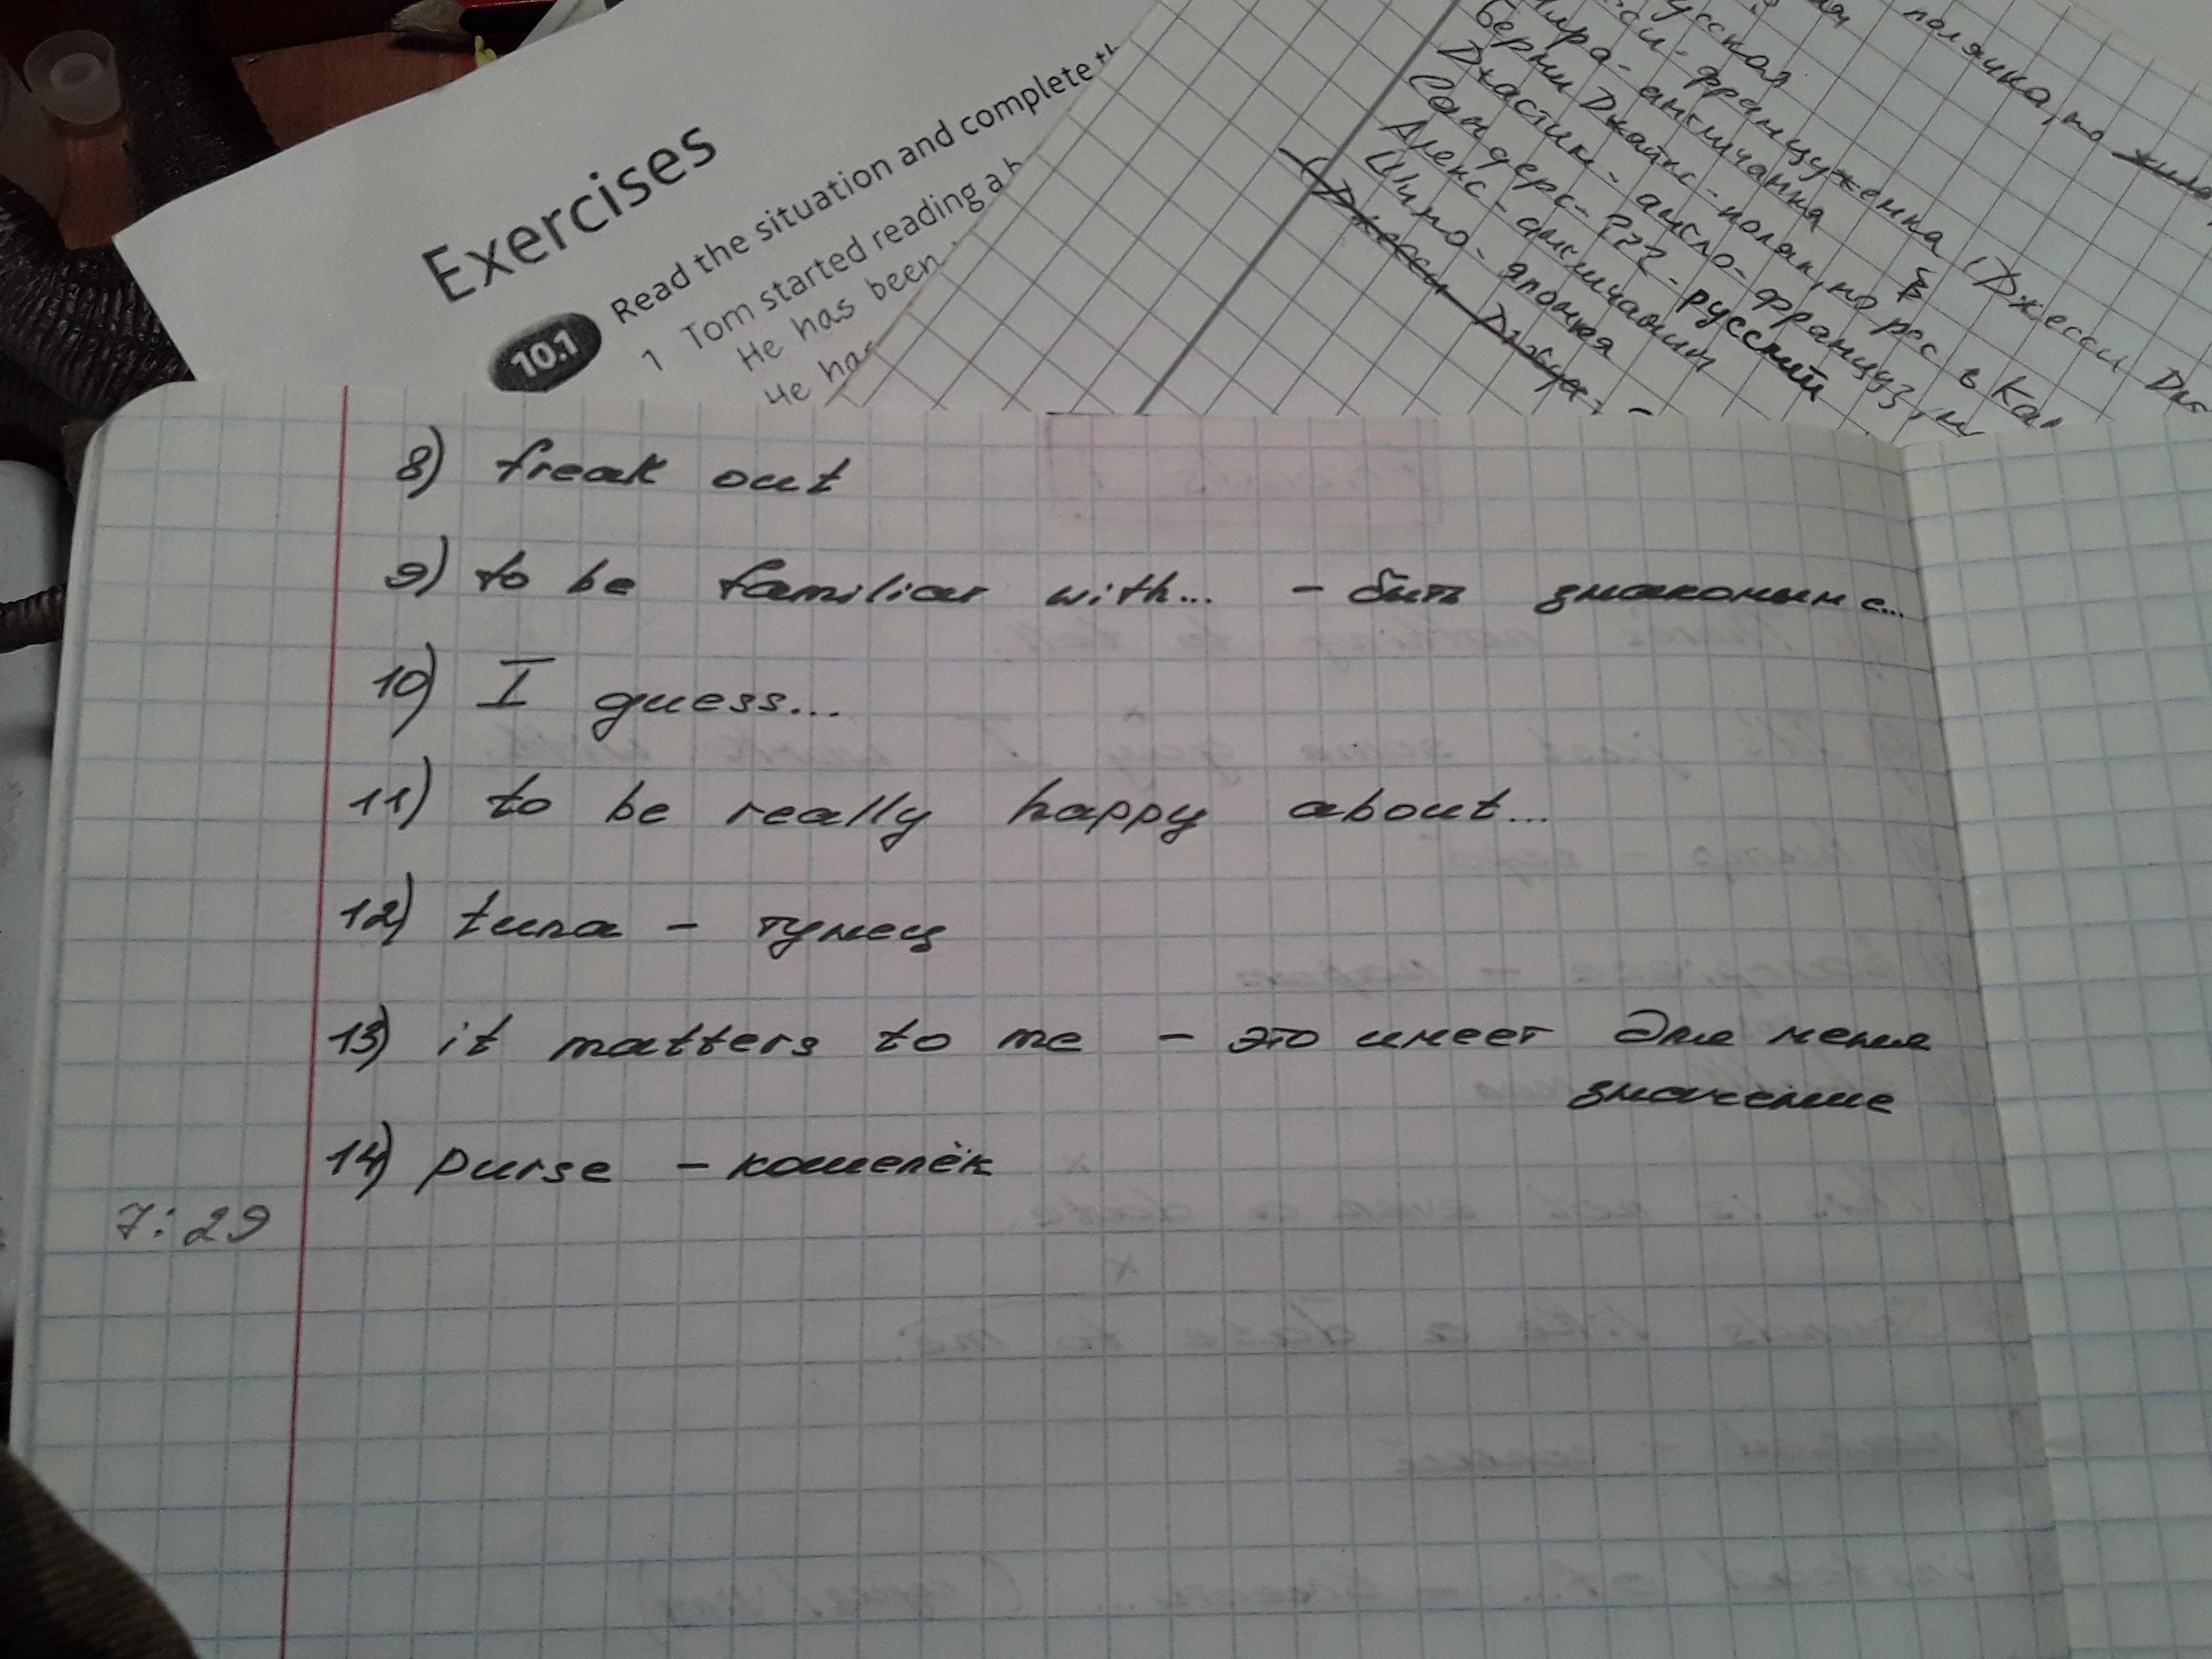 Exercises
10.1 Read the situation and complete
1 Tom started reading a
He has been
He has
полячка, но
русская
француженка (Джесси
Мира - англичанка
Берни Джайлс - поляк, но рос в
Джастин - англо-француз, н
Сандерс - ??? - русский
Алекс - англичанин
Шино - японка
(Джесси
8) freak out
9) to be familiar with... - быть знакомым с...
10) I guess...
11) to be really happy about...
12) tuna - тунец
13) it matters to me - это имеет для меня
значение
14) purse - кошелёк
7:29